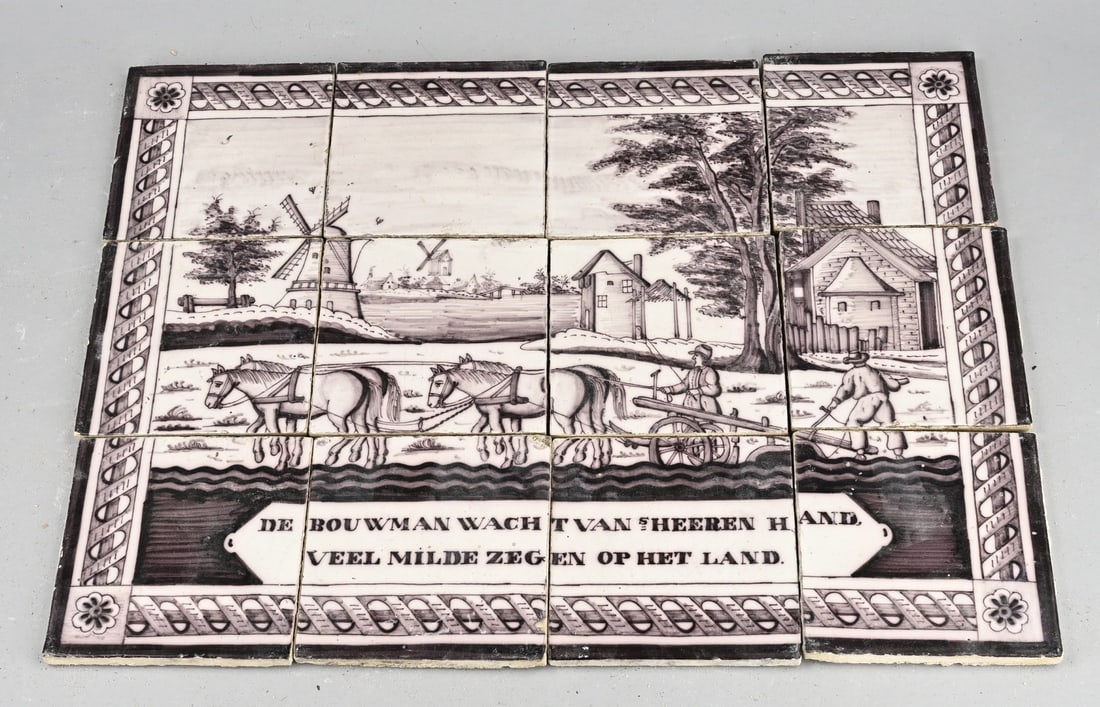 DE BOUWMAN WACHT VAN 'SHEEREN HAND,
VEEL MILDE ZEGEN OP HET LAND.